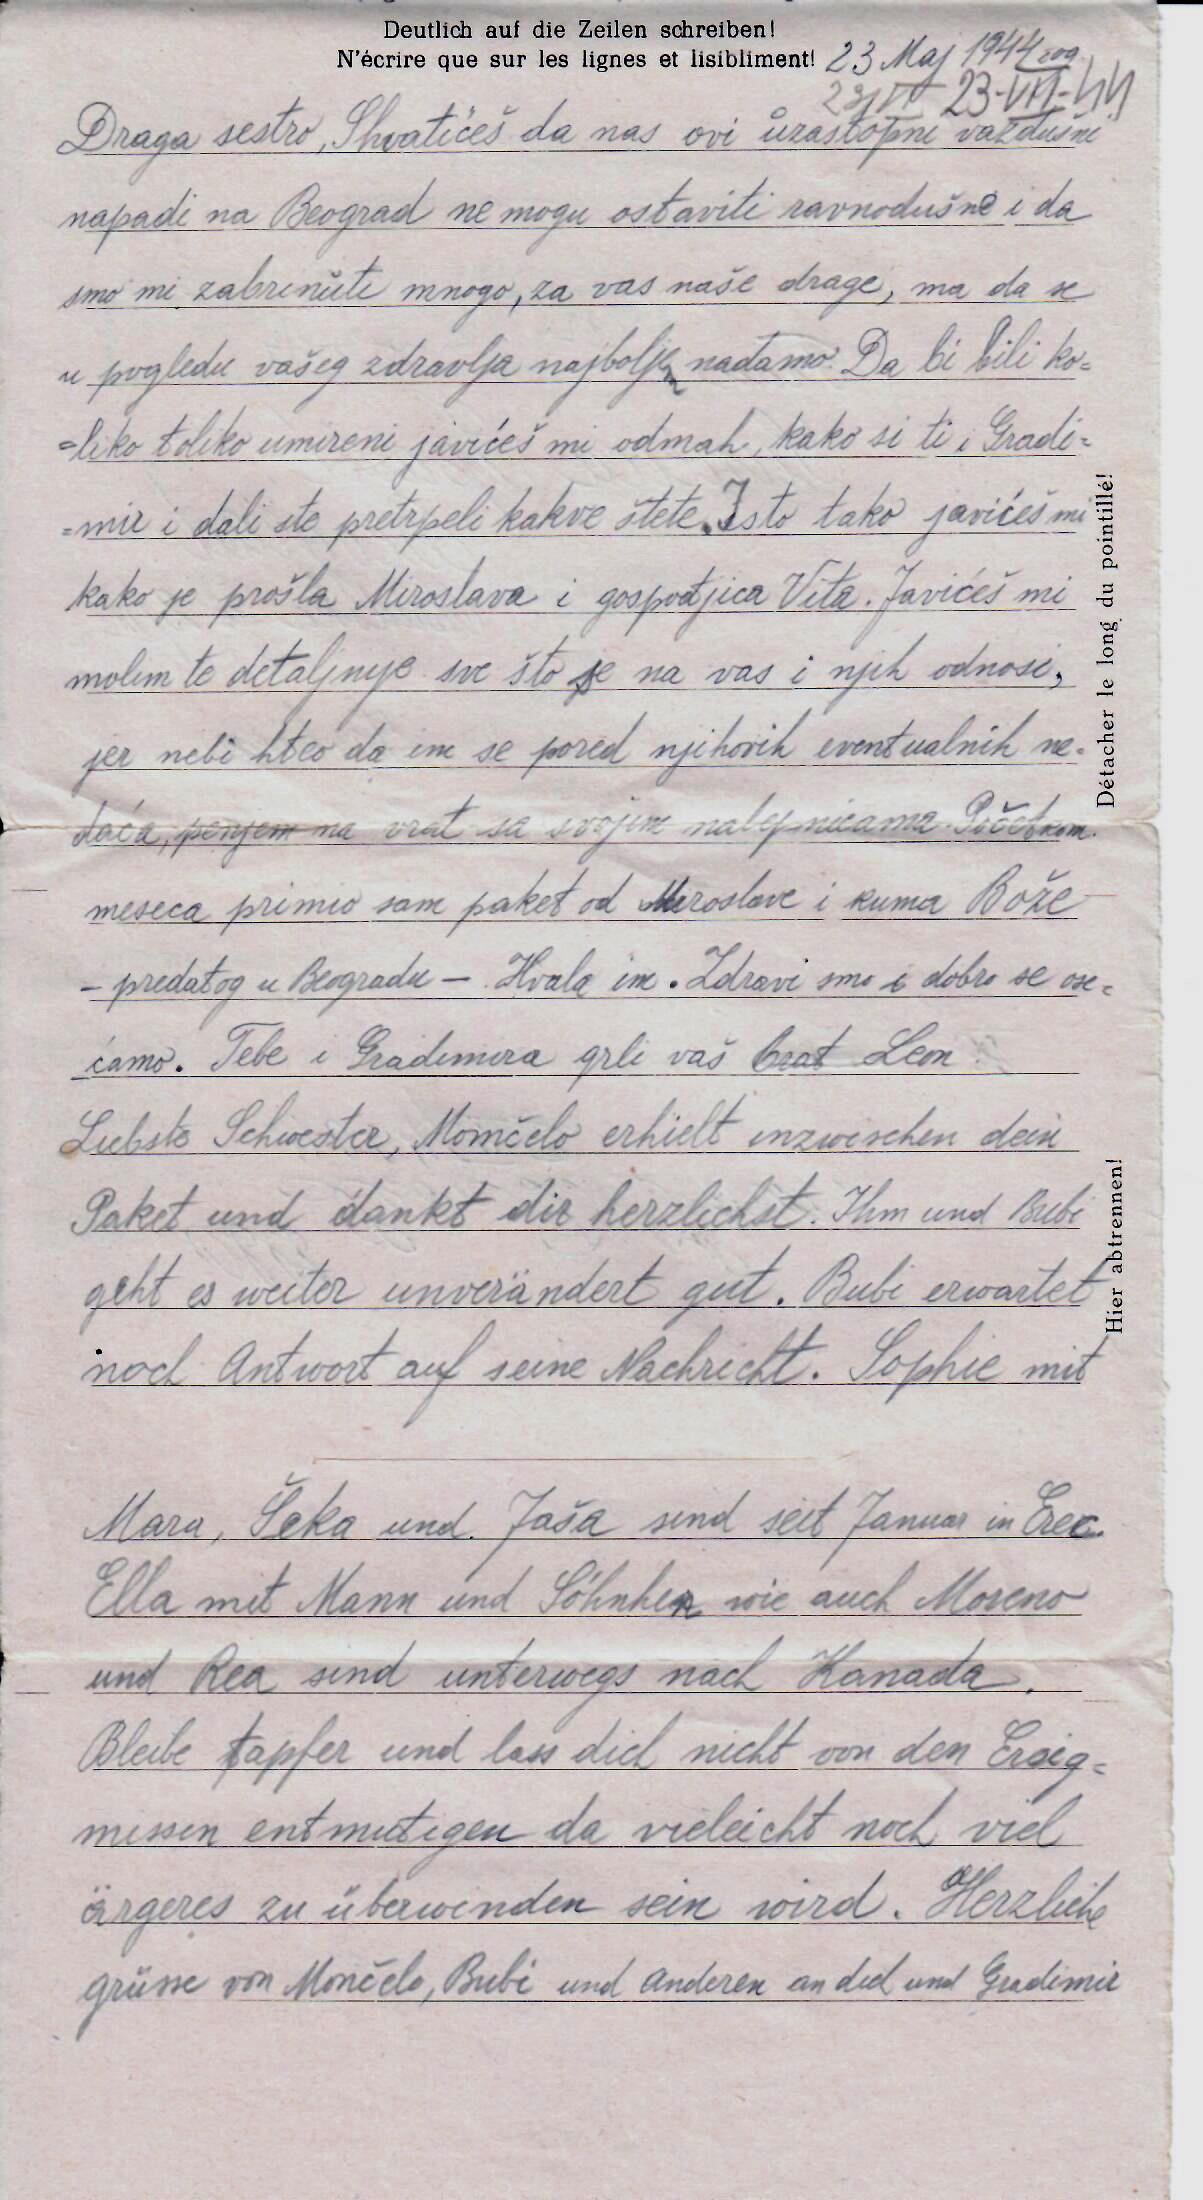 Deutlich auf die Zeilen schreiben!
N'écrire que sur les lignes et lisibliment!
23 Maj 1944 god.
23-VII-44
Draga sestro, Shvatićeš da nas ovi uzastopni vazdušni
napadi na Beograd ne mogu ostaviti ravnodušne i da
smo mi zabrinuti mnogo, za vas naše drage, ma da se
u pogledu vašeg zdravlja najbolje nadamo. Da bi bili ko=
=liko toliko umireni javićeš mi odmah, kako si ti i Gradi=
=mir i dali ste pretrpeli kakve štete. Isto tako javićeš mi
kako je prošla Miroslava i gospodjica Vita. Javićeš mi
molim te detaljnije sve što se na vas i njih odnosi,
jer nebi hteo da im se pored njihovih eventualnih ne-
daća, penjem na vrat sa svojim nalepnicama. Početkom
meseca primio sam paket od Miroslave i kuma Bože
- predatog u Beogradu - Hvala im. Zdravi smo i dobro se ose=
ćamo. Tebe i Gradimira grli vaš brat Leon
Liebste Schwester, Momčelo erhielt inzwischen dein
Paket und dankt dir herzlichst. Ihm und Bubi
geht es weiter unverändert gut. Bubi erwartet
noch Antwort auf seine Nachricht. Sophie mit
Mara, Šeka und Jaša sind seit Januar in Erec.
Ella mit Mann und Söhnhen wie auch Moreno
und Rea sind unterwegs nach Kanada.
Bleibe tapfer und lass dich nicht von den Ereig=
nissen entmutigen da vieleicht noch viel
ärgeres zu überwinden sein wird. Herzliche
grüsse von Mončelo, Bubi und Anderen an dich und Gradimir
Détacher le long du pointillé!
Hier abtrennen!